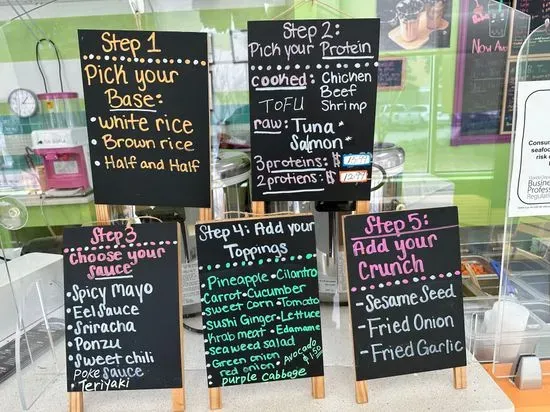 Step 1
Pick your
Base:
- white rice
- Brown rice
- Half and Half
Step 2:
Pick your Protein
cooked: Chicken
TOFU Beef
Shrimp
raw: Tuna*
Salmon*
3 proteins: $
2 protiens: $ 12.99
Step 3
Choose your
sauce
• Spicy Mayo
• Eel sauce
• Sriracha
• Ponzu
• sweet chili
Poke sauce
• Teriyaki
Step 4: Add your
Toppings
• Pineapple • Cilantro
• Carrot • Cucumber
• sweet corn • Tomato
• sushi Ginger • Lettuce
• Krab meat • Edamame
• seaweed salad
• Green onion • Avocado
• red onion $1.50
purple Cabbage
Step 5:
Add your
Crunch
- Sesame Seed
- Fried Onion
- Fried Garlic
Now
Consu
seafo
ris
Business
Profess
Regulat